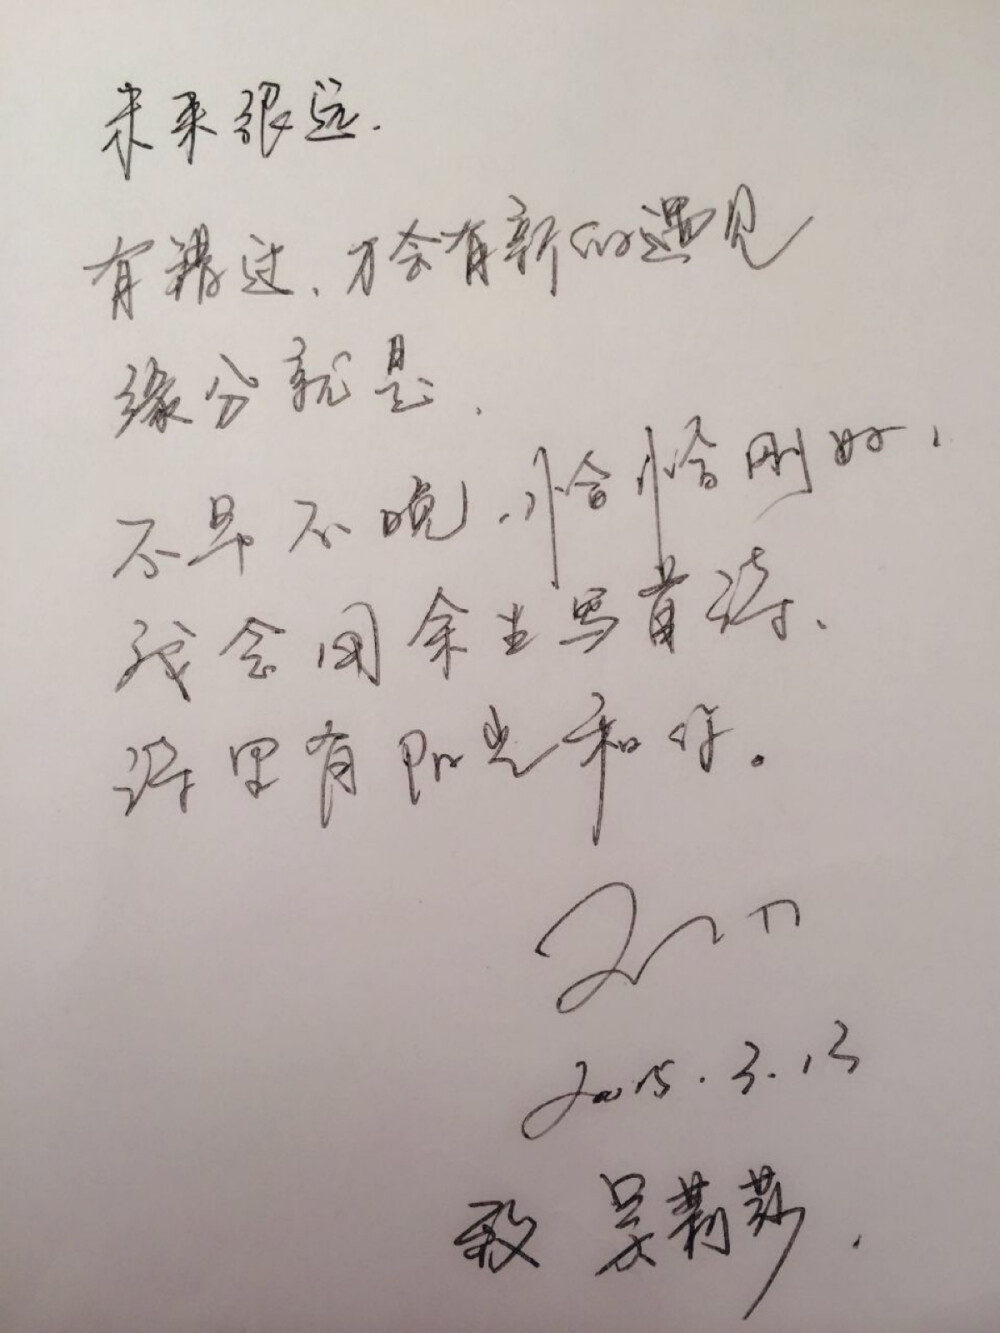 未来很远.
有错过、才会有新的遇见
缘分就是、
不早不晚、恰恰刚好,
我会用余生写首诗、
诗里有阳光和你。
2015.3.13
致 吴莉莎.